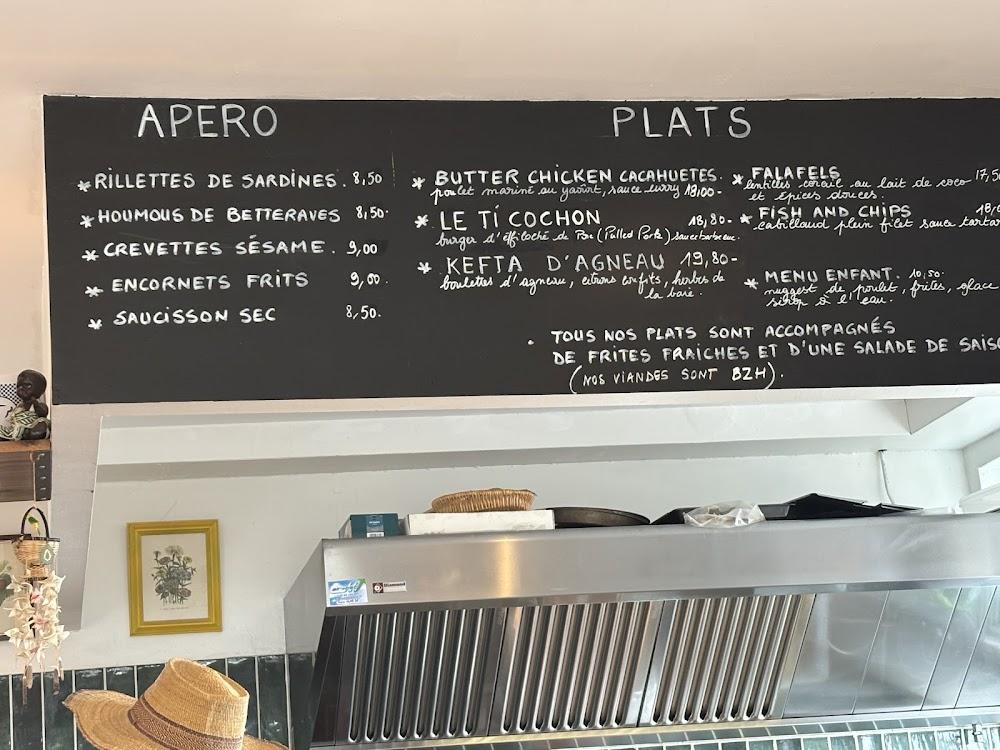 APERO
* RILLETTES DE SARDINES. 8,50
* HOUMOUS DE BETTERAVES 8,50.
* CREVETTES SÉSAME. 9,00
* ENCORNETS FRITS 9,00.
* SAUCISSON SEC 8,50.
PLATS
* BUTTER CHICKEN CACAHUETES.
poulet mariné au yaourt, sauce curry 19,00-
* LE TI COCHON 18,80-
burger d'effiloché de Porc (Pulled Pork) sauce barbecue.
* KEFTA D'AGNEAU 19,80-
boulettes d'agneau, citrons confits, herbes de
la baie.
* FALAFELS 17,5
lentilles corail au lait de coco
et épices douces.
* FISH AND CHIPS 18,0
cabillaud plein filet sauce tartar
* MENU ENFANT. 10,50.
nuggest de poulet, frites, glace
sirop à l'eau.
. TOUS NOS PLATS SONT ACCOMPAGNÉS
DE FRITES FRAICHES ET D'UNE SALADE DE SAISO
(NOS VIANDES SONT BZH).